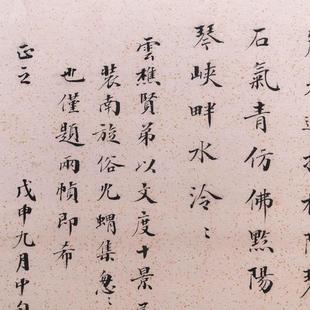 石氣青仿佛黟陽
琴峽畔水泠〻
雲樵賢弟以文度十景
裝南旋俗冗蝟集怱〻
也僅題兩幀即希
正之
戊申九月中旬